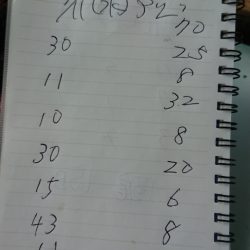 70
30 25
11 8
32
10
8
30
20
15 6
43 8